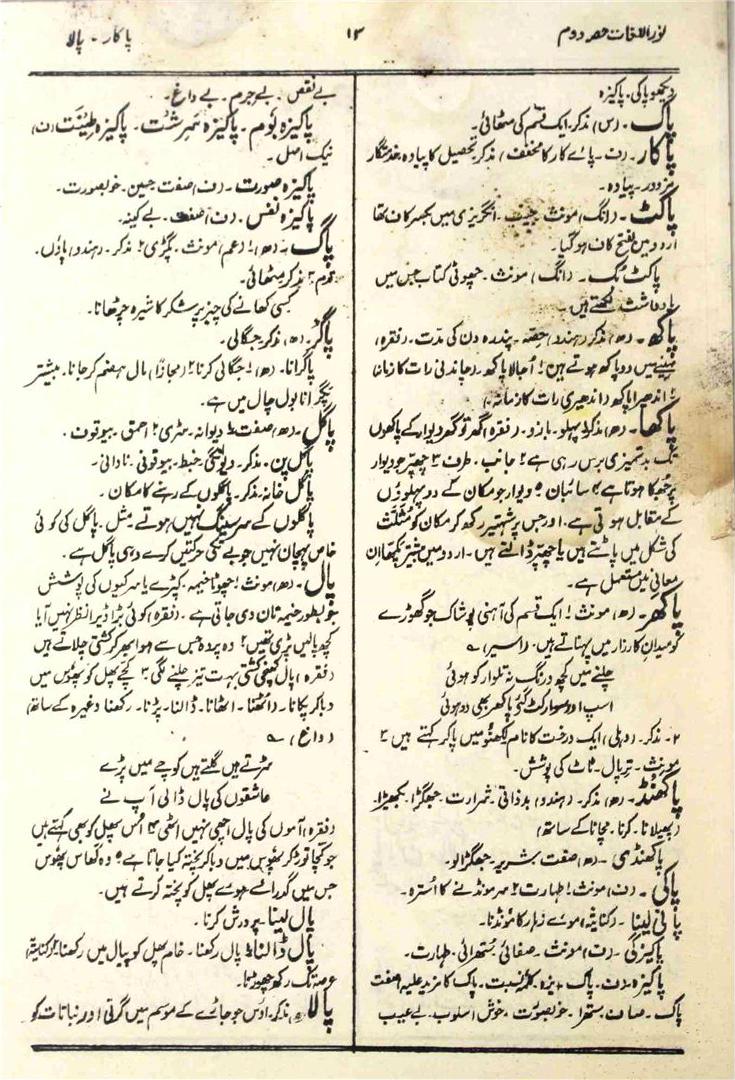 نور اللغات حصہ دوم
۱۳
پاکار۔ پالا
دیکھو پاکی۔ پاکیزہ
پاک۔ (س) مذکر۔ ایک قسم کی مٹھائی۔
پاکار۔ (ن۔ پاے کار کا مخفف) مذکر۔ تحصیل کا پیادہ خدمتگار
مزدور۔ پیادہ۔
پاکٹ۔ (انگ) مونث۔ جیب۔ انگریزی میں بکسر کاف تھا
اردو میں بفتح کاف ہوگیا۔
پاکٹ بک۔ (انگ) مونث۔ چھوٹی کتاب جس میں
یادداشت لکھتے ہیں۔
پاکھ۔ (ھ) مذکر (ہندو) حصّہ۔ پندرہ دن کی مدّت۔ (فقرہ)
مہینے میں دو پاکھ ہوتے ہیں ۱ اُجالا پاکھ۔ (چاندنی رات کا زمانہ)
۲ اندھیرا پاکھ (اندھیری رات کا زمانہ۔)
پاکھا۔ (ھ) مذکر ۱ پہلو۔ بازو۔ (فقرہ) گھر تو گھر دیوار کے پاکھوں
تک بدتمیزی برس رہی ہے ۲ جانب۔ طرف ۳ چھپر جو دیوار
پر جھکا ہوتا ہے ۴ سائبان ۵ دیوار جو مکان کے دو پہلوؤں
کے مقابل ہوتی ہے۔ اور جس پر شہتیر رکھ کر مکان کو مثلّث
کی شکل میں پاٹتے ہیں یا چھپّر ڈالتے ہیں۔ اردو میں بیشتر پکّھا ان
معانی میں مستعمل ہے۔
پاکھر۔ (ھ) مونث ۱ ایک قسم کی آہنی پوشاک جو گھوڑے
کو میدان کارزار میں پہناتے ہیں۔ (اسیر) ؎
چلنے میں کچھ درنگ نہ تلوار کو ہوئی
اسپ اور سوار کٹ گئے پاکھر بھی دو ہوئی
۲۔ مذکر۔ (دہلی) ایک درخت کا نام لکھنؤ میں پاکر کہتے ہیں ۳
مونث۔ ترپال۔ ٹاٹ کی پوشش۔
پاکھنڈ۔ (ھ) مذکر۔ (ہندو) بدذاتی۔ شرارت۔ جھگڑا۔ بکھیڑا۔
(پھیلانا۔ کرنا۔ مچانا کے ساتھ)
پاکھنڈی۔ (ھ) صفت شریر۔ جھگڑالو۔
پاکی۔ (ن) مونث ۱ طہارت ۲ سر مونڈنے کا اُسترہ۔
پاکی لینا۔ (کنایۃً) موے زہار کا مونڈنا۔
پاکیزگی۔ (ن) مونث۔ صفائی۔ ستھرائی۔ طہارت۔
پاکیزہ۔ (ن۔ پاک۔ یزہ۔ کلمۂ نسبت۔ پاک کا مزید علیہ) صفت
پاک۔ صاف۔ ستھرا۔ خوبصورت۔ خوش اسلوب۔ بے عیب
بے نقص۔ بے جرم۔ بے داغ۔
پاکیزہ بوم۔ پاکیزہ سرشت۔ پاکیزہ طینت (ن)
نیک اصل۔
پاکیزہ صورت۔ (ن) صفت حسین۔ خوبصورت۔
پاکیزہ نفس۔ (ن) صفت۔ بے کینہ۔
پاگ۔ (ھ) ۱ (عم) مونث۔ پگڑی ۲ مذکر۔ (ہندو) پاؤں۔
قدم ۳ مذکر مٹھائی۔
کسی کھانے کی چیز پر شکر کا شیرہ چڑھانا۔
پاگر۔ (ھ) مذکر۔ جگالی۔
پاگرانا۔ (ھ) ۱ جگالی کرنا ۲ (مجازاً) مال ہضم کر جانا۔ بیشتر
پگرانا بول چال میں ہے۔
پاگل۔ (ھ) صفت ۱ دیوانہ۔ سڑی ۲ احمق۔ بیوقوف۔
پاگل پن۔ مذکر۔ دیوانگی خبط۔ بیوقوفی۔ نادانی۔
پاگل خانہ۔ مذکر۔ پاگلوں کے رہنے کا مکان۔
پاگلوں کے سر سینگ نہیں ہوتے۔ مثل۔ پاگل کی کوئی
خاص پہچان نہیں جو بے تکی حرکتیں کرے وہی پاگل ہے۔
پال۔ (ھ) مونث ۱ چھوٹا خیمہ۔ کپڑے یا سرکیوں کی پوشش
جو بطور خیمہ تان دی جاتی ہے۔ (فقرہ) کوئی بڑا ڈیرا نظر نہیں آیا
کچھ پالیں پڑی تھیں ۲ وہ پردہ جس سے ہوا بھر کر کشتی چلاتے ہیں
(فقرہ) پال کھنچی کشتی بہت تیز چلنے لگی ۳ کچے پھل کو بھوس میں
دبا کر پکانا۔ (اُٹھنا۔ اٹھانا۔ ڈالنا۔ پڑنا۔ رکھنا وغیرہ کے ساتھ)
(داغ) ؎
سڑتے ہیں گلتے ہیں کوچے میں پڑے
عاشقوں کی پال ڈالی آپ نے
(فقرہ) آموں کی پال اچھی نہیں اٹھی ۴ اُس پھل کو بھی کہتے ہیں
جو کچا توڑ کر بھوس میں دبا کر پختہ کیا جاتا ہے ۵ وہ گھاس پھوس
جس میں گدرائے ہوئے پھل کو پختہ کرتے ہیں۔
پال لینا۔ پرورش کرنا۔
پال ڈالنا ۱ پال رکھنا۔ خام پھل کو پیال میں رکھنا ۲ (کنایۃً)
عرصہ تک رکھ چھوڑنا۔
پالا۔ (ھ) مذکر۔ اوس جو جاڑے کے موسم میں گرتی اور نباتات کو